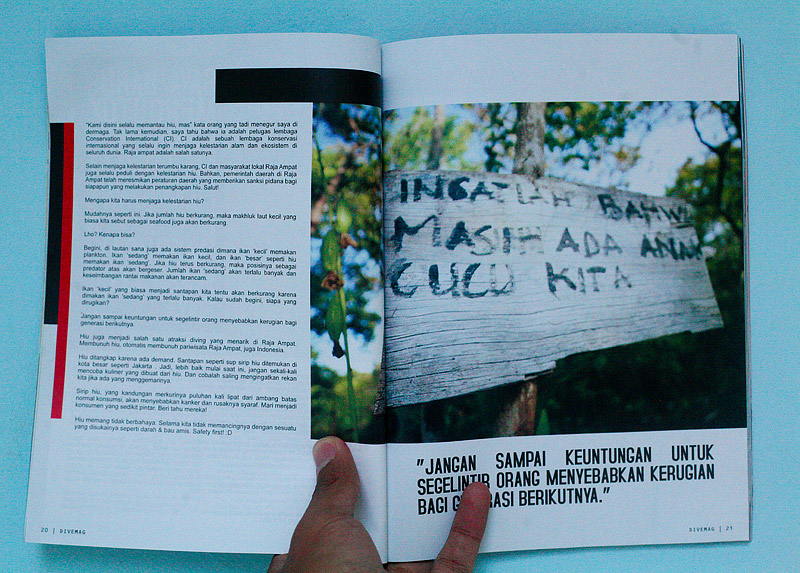 "Kami disini selalu memantau hiu, mas" kata orang yang tadi menegur saya di
dermaga. Tak lama kemudian, saya tahu bahwa ia adalah petugas lembaga
Conservation International (CI). CI adalah sebuah lembaga konservasi
internasional yang selalu ingin menjaga kelestarian alam dan ekosistem di
seluruh dunia. Raja ampat adalah salah satunya.
Selain menjaga kelestarian terumbu karang, CI dan masyarakat lokal Raja Ampat
juga selalu peduli dengan kelestarian hiu. Bahkan, pemerintah daerah di Raja
Ampat telah meresmikan peraturan daerah yang memberikan sanksi pidana bagi
siapapun yang melakukan penangkapan hiu. Salut!
Mengapa kita harus menjaga kelestarian hiu?
Mudahnya seperti ini. Jika jumlah hiu berkurang, maka makhluk laut kecil yang
biasa kita sebut sebagai seafood juga akan berkurang.
Lho? Kenapa bisa?
Begini, di lautan sana juga ada sistem predasi dimana ikan 'kecil' memakan
plankton. Ikan 'sedang' memakan ikan kecil, dan ikan 'besar' seperti hiu
memakan ikan 'sedang'. Jika hiu terus berkurang, maka posisinya sebagai
predator atas akan bergeser. Jumlah ikan 'sedang' akan terlalu banyak dan
keseimbangan rantai makanan akan terancam.
Ikan 'kecil' yang biasa menjadi santapan kita tentu akan berkurang karena
dimakan ikan 'sedang' yang terlalu banyak. Kalau sudah begini, siapa yang
dirugikan?
Jangan sampai keuntungan untuk segelintir orang menyebabkan kerugian bagi
generasi berikutnya.
Hiu juga menjadi salah satu atraksi diving yang menarik di Raja Ampat.
Membunuh hiu, otomatis membunuh pariwisata Raja Ampat, juga Indonesia.
Hiu ditangkap karena ada demand. Santapan seperti sup sirip hiu ditemukan di
kota besar seperti Jakarta . Jadi, lebih baik mulai saat ini, jangan sekali-kali
mencoba kuliner yang dibuat dari hiu. Dan cobalah saling mengingatkan rekan
kita jika ada yang menggemarinya.
Sirip hiu, yang kandungan merkurinya puluhan kali lipat dari ambang batas
normal konsumsi, akan menyebabkan kanker dan rusaknya syaraf. Mari menjadi
konsumen yang sedikit pintar. Beri tahu mereka!
Hiu memang tidak berbahaya. Selama kita tidak memancingnya dengan sesuatu
yang disukainya seperti darah & bau amis. Safety first! :D
20 | DIVEMAG
INGATLAH BAHWA
MASIH ADA ANAK
CUCU KITA
"JANGAN SAMPAI KEUNTUNGAN UNTUK
SEGELINTIR ORANG MENYEBABKAN KERUGIAN
BAGI GENERASI BERIKUTNYA."
DIVEMAG | 21